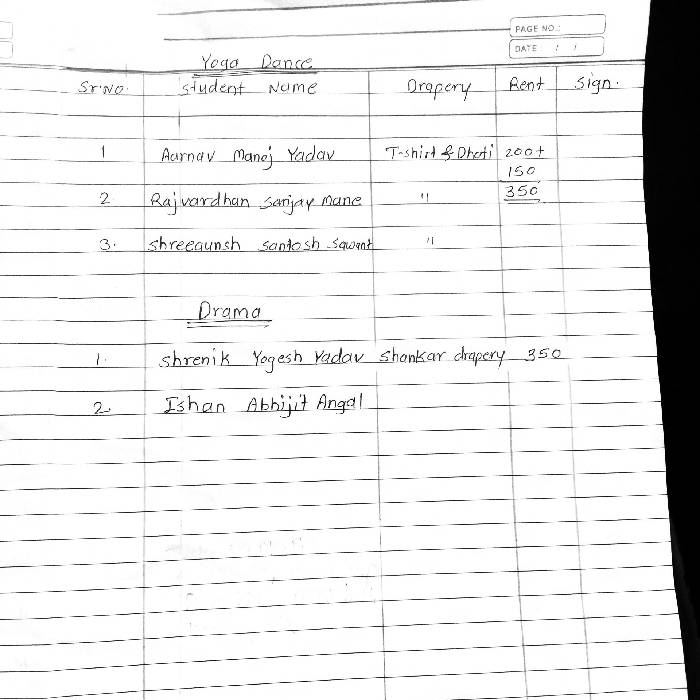 PAGE NO.:
DATE: / /
Yoga Dance
Sr.No. Student Name Drapery Rent Sign.
1 Aarnav Manoj Yadav T-shirt & Dhoti 200+
150
2. Rajvardhan Sanjay Mane " 350
3. Shreeaunsh Santosh Sawant "
Drama
1. Shrenik Yogesh Yadav Shankar drapery 350
2. Ishan Abhijit Angal